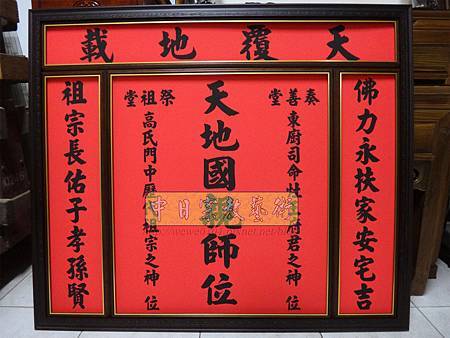 天覆地載
佛力永扶家安宅吉
奏善堂
東廚司命灶府君之神位
天地國親師位
祭祖堂
高氏門中歷祖宗之神位
祖宗長佑子孝孫賢
中日宗教藝術